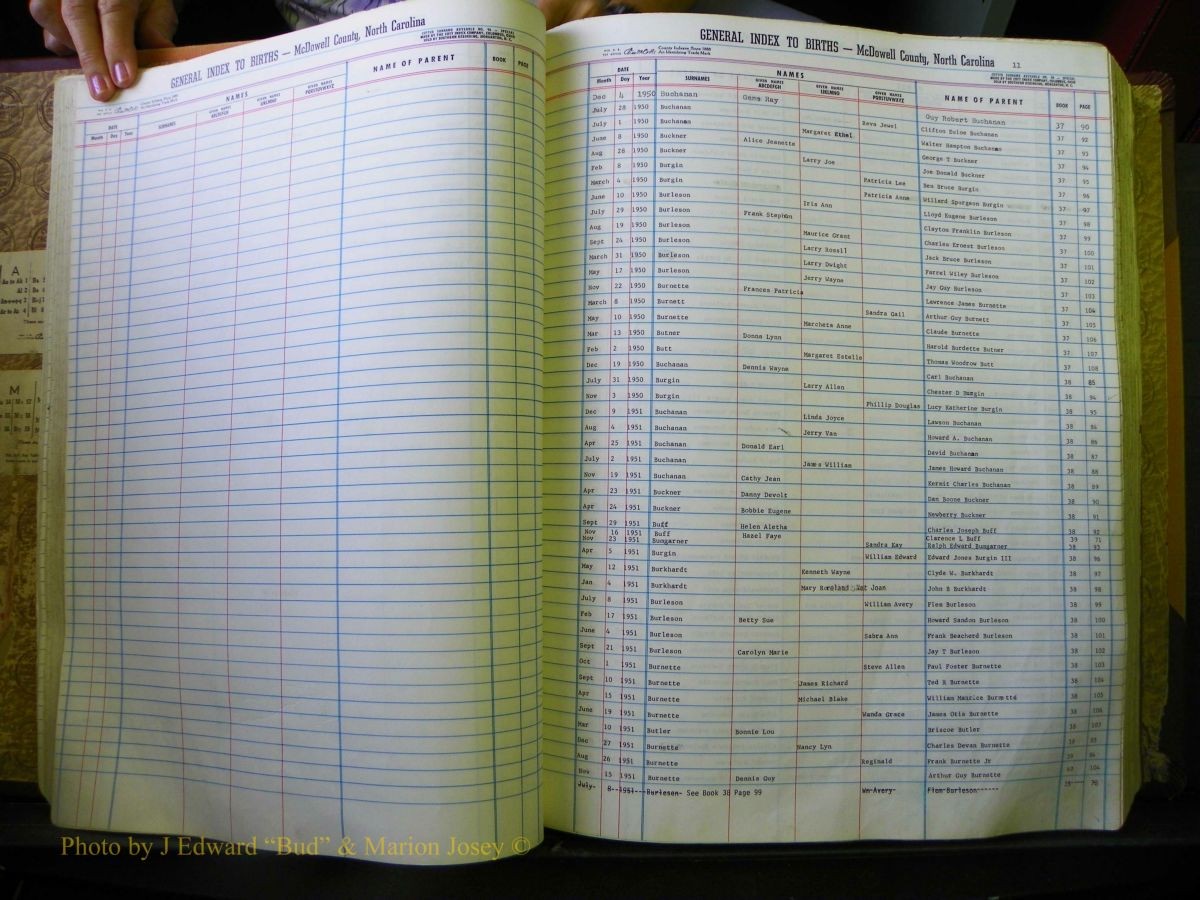 GENERAL INDEX TO BIRTHS — McDowell County, North Carolina
COTT'S SURNAME KEYTABLE NO. 96 — SPECIAL
MADE BY THE COTT INDEX COMPANY, COLUMBUS, O.
SOLD BY SOUTHERN RECORDING, MORGANTON, N. C.
DATE NAMES NAME OF PARENT BOOK PAGE
Month Day Year SURNAMES GIVEN NAMES ABCDEFGH GIVEN NAMES IJKLMNO GIVEN NAMES PQRSTUVWXYZ
GENERAL INDEX TO BIRTHS — McDowell County, North Carolina 11
County Indexes Since 1888
An Identifying Trade Mark
DATE NAMES NAME OF PARENT BOOK PAGE
Month Day Year SURNAMES GIVEN NAMES ABCDEFGH GIVEN NAMES IJKLMNO GIVEN NAMES PQRSTUVWXYZ
Dec 4 1950 Buchanan Gene Ray Guy Robert Buchanan 37 90
July 28 1950 Buchanan Zeva Jewel Clifton Euloe Buchanan 37 92
July 1 1950 Buchanan Margaret Ethel Walter Hampton Buchanan 37 93
June 8 1950 Buckner Alice Jeanette George T Buckner 37 94
Aug 26 1950 Buckner Larry Joe Joe Donald Buckner 37 95
Feb 8 1950 Burgin Patricia Lee Ben Bruce Burgin 37 96
March 4 1950 Burgin Patricia Anne Willard Spurgeon Burgin 37 97
June 10 1950 Burleson Iris Ann Lloyd Eugene Burleson 37 98
July 29 1950 Burleson Frank Stephen Clayton Franklin Burleson 37 99
Aug 19 1950 Burleson Maurice Grant Charles Ernest Burleson 37 100
Sept 24 1950 Burleson Larry Rossll Jack Bruce Burleson 37 101
March 31 1950 Burleson Larry Dwight Farrel Wiley Burleson 37 102
May 17 1950 Burleson Jerry Wayne Jay Guy Burleson 37 103
Nov 22 1950 Burnette Frances Patricia Lawrence James Burnette 37 104
March 8 1950 Burnett Sandra Gail Arthur Guy Burnett 37 105
May 10 1950 Burnette Marcheta Anne Claude Burnette 37 106
Mar 13 1950 Butner Donna Lynn Harold Burdette Butner 37 107
Feb 2 1950 Butt Margaret Estelle Thomas Woodrow Butt 37 108
Dec 19 1950 Buchanan Dennis Wayne Carl Buchanan 38 85
July 31 1950 Burgin Larry Allen Chester D Burgin 38 94
Nov 3 1950 Burgin Phillip Douglas Lucy Katherine Burgin 38 95
Dec 9 1951 Buchanan Linda Joyce Lawson Buchanan 38 84
Aug 4 1951 Buchanan Jerry Van Howard A. Buchanan 38 86
Apr 25 1951 Buchanan Donald Earl David Buchanan 38 87
July 2 1951 Buchanan James William James Howard Buchanan 38 88
Nov 19 1951 Buchanan Cathy Jean Kermit Charles Buchanan 38 89
Apr 23 1951 Buckner Danny Devolt Dan Boone Buckner 38 90
Apr 24 1951 Buckner Bobbie Eugene Newberry Buckner 38 91
Sept 29 1951 Buff Helen Aletha Charles Joseph Buff 38 92
Nov 16 1951 Buff Hazel Faye Clarence L Buff 39 71
Nov 23 1951 Bumgarner Sandra Kay Ralph Edward Bumgarner 38 93
Apr 5 1951 Burgin William Edward Edward Jones Burgin III 38 96
May 12 1951 Burkhardt Kenneth Wayne Clyde W. Burkhardt 38 97
Jan 4 1951 Burkhardt Mary Joan John B Burkhardt 38 98
July 8 1951 Burleson William Avery Flem Burleson 38 99
Feb 17 1951 Burleson Betty Sue Howard Sandon Burleson 38 100
June 4 1951 Burleson Sabra Ann Frank Beacherd Burleson 38 101
Sept 21 1951 Burleson Carolyn Marie Jay T Burleson 38 102
Oct 1 1951 Burnette Steve Allen Paul Foster Burnette 38 103
Sept 10 1951 Burnette James Richard Ted R Burnette 38 104
Apr 15 1951 Burnette Michael Blake William Maurice Burnette 38 105
June 19 1951 Burnette Wanda Grace James Otis Burnette 38 106
Mar 10 1951 Butler Bonnie Lou Briscoe Butler 38 107
Dec 27 1951 Burnette Nancy Lyn Charles Devan Burnette
Aug 26 1951 Burnette Reginald Frank Burnette Jr
Nov 15 1951 Burnette Dennis Guy Arthur Guy Burnette 104
July- 8--1951---Burleson- See Book 38 Page 99 Wm-Avery- Flem-Burleson------
A
M
Photo by J Edward “Bud” & Marion Josey ©